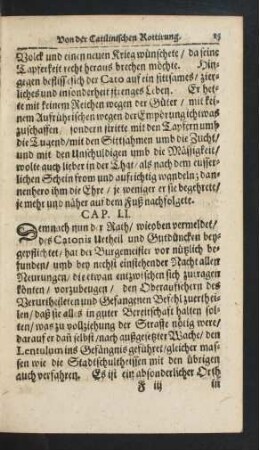 Von der Catilinischen Rottirung. 23
Volck und einen neuen Krieg wünschete / da seine
Tapferkeit recht heraus brechen möchte. Hin-
gegen befliss sich der Cato auf ein sittsames / zier-
liches und insonderheit strenges Leben. Er het-
te mit keinem Reichen wegen der Güter / mit kei-
nem Aufrührischen wegen der Empörung ichtwas
zuschaffen / sondern stritte mit den Tapfern umb
die Tugend / mit den Sittsahmen umb die Zucht /
und mit den Unschuldigen umb die Mässigkeit /
wolte auch lieber in der That / als nach dem eusser-
lichen Schein from und aufrichtig wandeln; dan-
nenhero ihm die Ehre / je weniger er sie begehrete /
je mehr und näher auf dem Fuß nachfolgete.
CAP. LI.
Demnach nun der Rath / wie oben vermeldet /
des Catonis Urtheil und Gutdüncken bey-
gepflichtet / hat der Burgemeister vor nützlich be-
funden / umb bey nechst einstehender Nacht allen
Neurungen / die etwan entzwischen sich zutragen
könten / vorzubeugen / den Oberaufsehern des
Verurtheileten und Gefangenen Befehl zuerthei-
len / daß sie alles in guter Bereitschaft halten sol-
ten / was zu vollziehung der Straffe nötig were /
darauf er dan selbst / nach außgesetzter Wache / den
Lentulum ins Gefängnis geführet / gleicher mas-
sen wie die Stadtschultheissen mit den übrigen
auch verfahren. Es ist ein absonderlicher Orth
F iij in